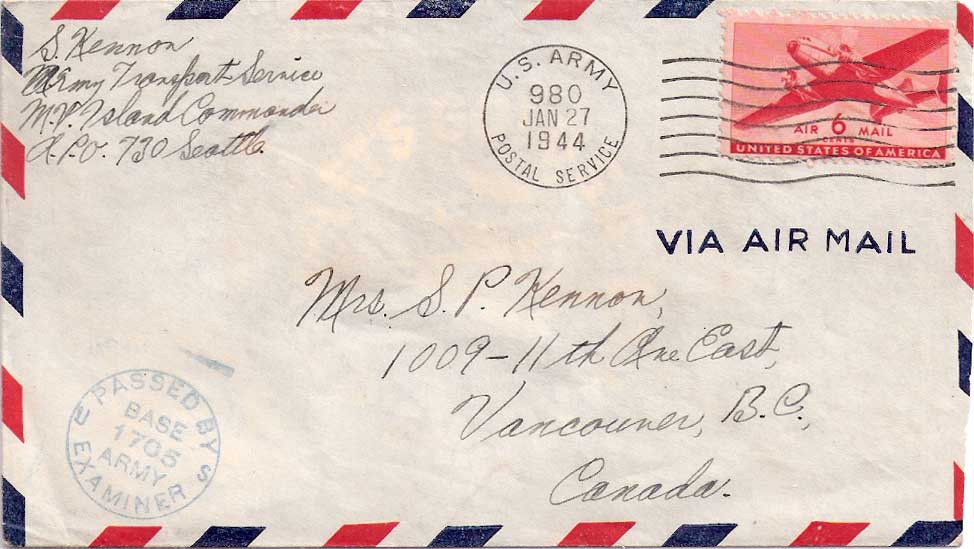 S. Kennon
Army Transport Service
M.V. Island Commander
A.P.O. 730 Seattle
U.S. ARMY
980
JAN 27
1944
POSTAL SERVICE
AIR 6 MAIL
CENTS
UNITED STATES OF AMERICA
VIA AIR MAIL
Mrs. S. P. Kennon,
1009-11th Ave East,
Vancouver, B.C.,
Canada.
PASSED BY
BASE
1705
ARMY
U S EXAMINER